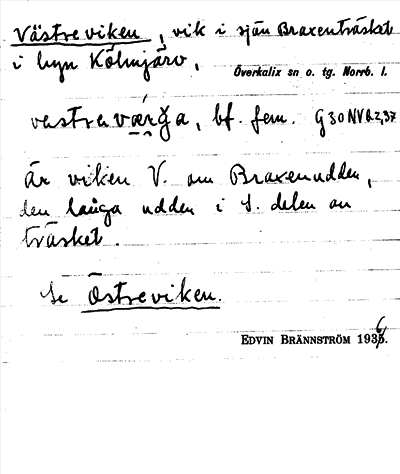 Västreviken, vik i sjön Braxenträsket
i byn Kölmjärv,
Överkalix sn o. tg. Norrb. l.
bf. fem. G 30 NV a 2, 37
är viken V. om Braxenudden,
den långa udden i S. delen av
träsket.
Se Östreviken.
EDVIN BRÄNNSTRÖM 1936.